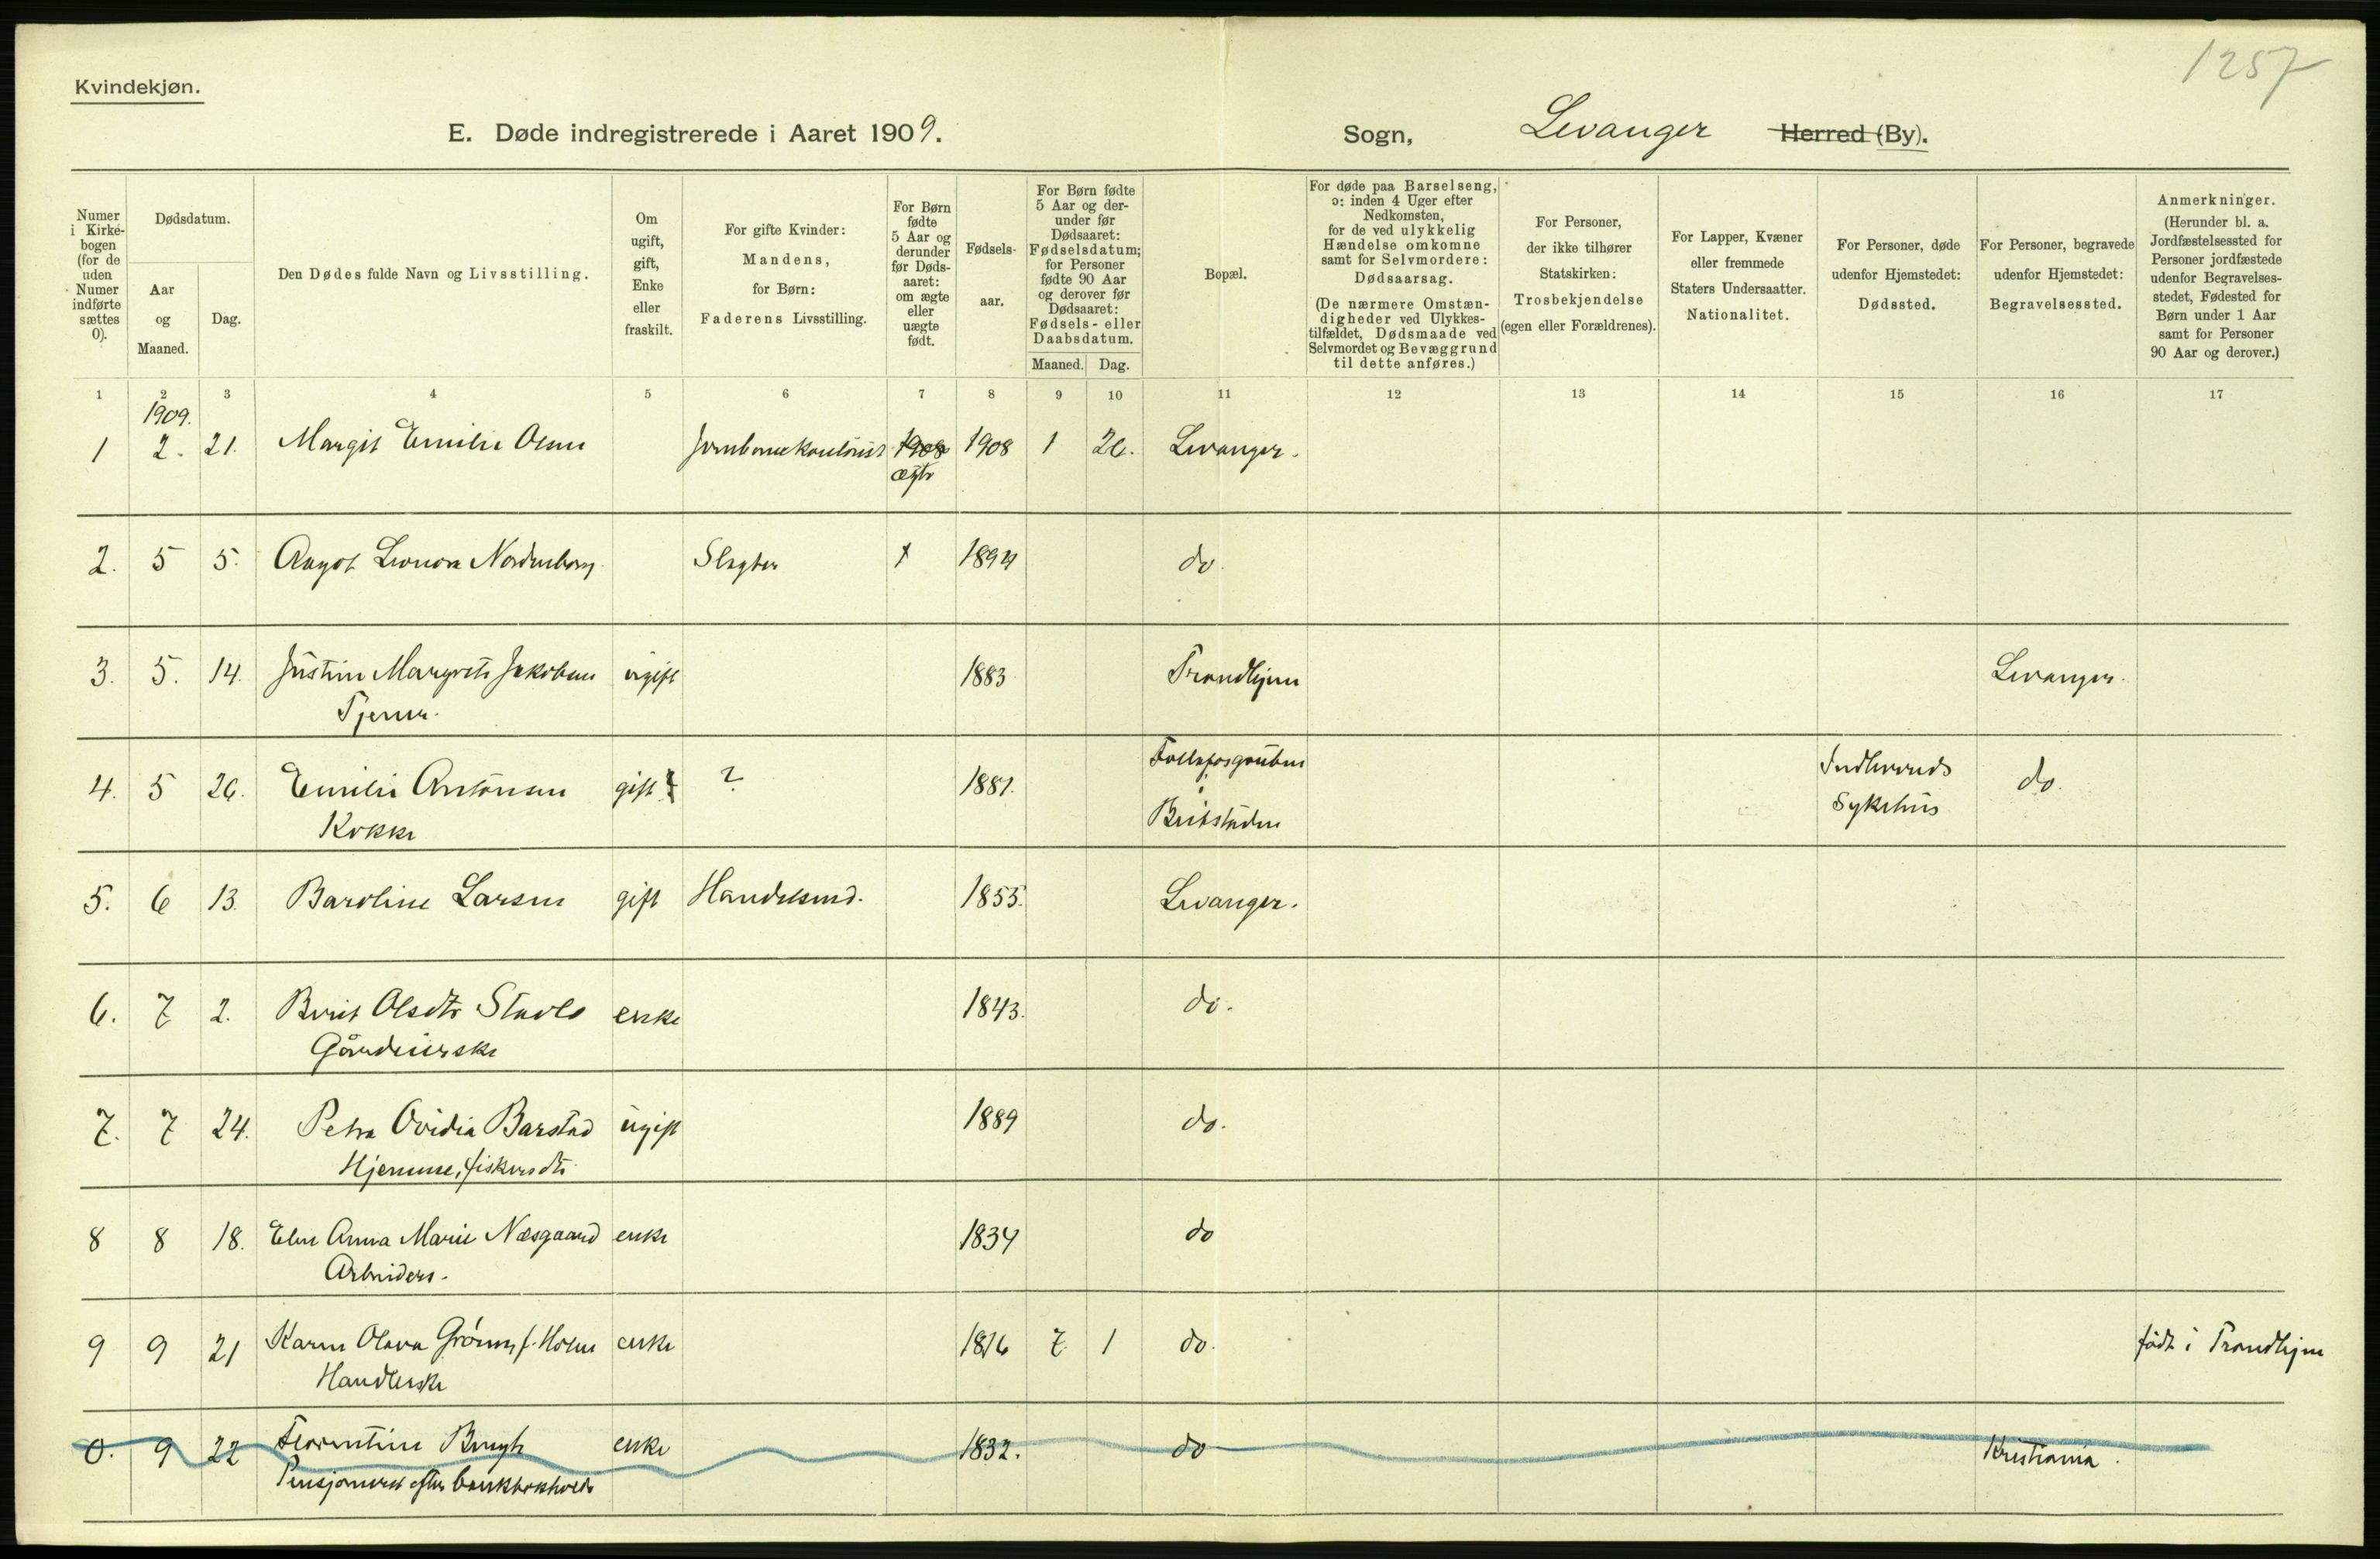 1257
Kvindekjøn.
E. Døde indregistrerede i Aaret 1909. Sogn, Levanger Herred (By).
Numer i Kirke-bogen (for de uden Numer indførte sættes 0).
Dødsdatum.
Aar og Maaned.
Dag.
Den Dødes fulde Navn og Livsstilling.
Om ugift, gift, Enke eller fraskilt.
For gifte Kvinder: Mandens, for Børn: Faderens Livsstilling.
For Børn fødte 5 Aar og derunder før Døds-aaret: om ægte eller uægte født.
Fødsels-aar.
For Børn fødte 5 Aar og der-under før Dødsaaret: Fødselsdatum; for Personer fødte 90 Aar og derover før Dødsaaret: Fødsels- eller Daabsdatum.
Maaned. Dag.
Bopæl.
For døde paa Barselseng, ɔ: inden 4 Uger efter Nedkomsten, for de ved ulykkelig Hændelse omkomne samt for Selvmordere: Dødsaarsag. (De nærmere Omstæn-digheder ved Ulykkes-tilfældet, Dødsmaade ved Selvmordet og Bevæggrund til dette anføres.)
For Personer, der ikke tilhører Statskirken: Trosbekjendelse (egen eller Forældrenes).
For Lapper, Kvæner eller fremmede Staters Undersaatter. Nationalitet.
For Personer, døde udenfor Hjemstedet: Dødssted.
For Personer, begravede udenfor Hjemstedet: Begravelsessted.
Anmerkninger. (Herunder bl. a. Jordfæstelsessted for Personer jordfæstede udenfor Begravelses-stedet, Fødested for Børn under 1 Aar samt for Personer 90 Aar og derover.)
1 2 3 4 5 6 7 8 9 10 11 12 13 14 15 16 17
1909.
1 2. 21. Margit Emilie Olsen 1908 1908 1 26. Levanger.
ægte
2. 5 5. Aagot Leonora Nordenborg Slagter 1894 do.
3. 5. 14. Justine Margrete Jakobsen ugift 1883 Trondhjem Levanger.
Tjener.
4. 5 26. Emilie Antonsen gift ? 1881. Indherreds do.
Kokke Sykehus
5. 6 13. Baroline Larsen gift Handelsmd. 1855. Levanger.
6. 7 2. Berit Olsdtr enke 1843. do.
7. 7 24. Petra Ovidia Barstad ugift 1889 do.
Hjemme, fiskersdtr
8 8 18. Elen Anna Marie Næsgaard enke 1834 do
Arbeiders.
9 9 21 Karen Olava f. Holm enke 1816 7. 1 do. født i Trondhjem
Handlerske
0. 9 22 enke 1832. do Kristiania.